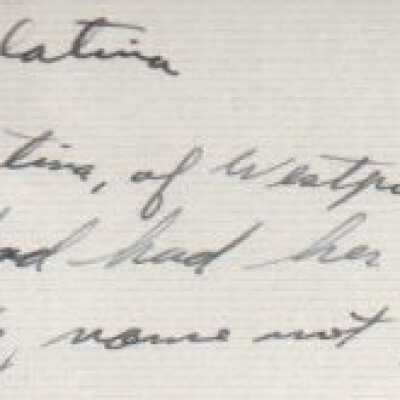 latina
tina, of Westpo
had had her
name not